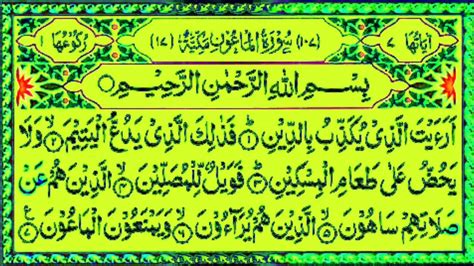 اٰيَاتُهَا ٧ (١٠٧) سُوْرَةُ الْمَاعُوْنَ مَكِّيَّةٌ (١٧) رُكُوْعُهَا
بِسْمِ اللّٰهِ الرَّحْمٰنِ الرَّحِيْمِ
اَرَءَيْتَ الَّذِيْ يُكَذِّبُ بِالدِّيْنِ ۱ فَذٰلِكَ الَّذِيْ يَدُعُّ الْيَتِيْمَ ۲ وَلَا
يَحُضُّ عَلٰى طَعَامِ الْمِسْكِيْنِ ۳ فَوَيْلٌ لِّلْمُصَلِّيْنَ ۴ الَّذِيْنَ هُمْ عَنْ
صَلَاتِهِمْ سَاهُوْنَ ۵ الَّذِيْنَ هُمْ يُرَآءُوْنَ ۶ وَيَمْنَعُوْنَ الْمَاعُوْنَ ۷